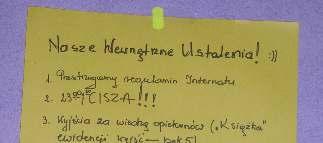 Nasze Wewnętrzne Ustalenia! :))
1. Przestrzegamy regulamin Internatu
2. 23⁰⁰ CISZA!!!
3. Wyjścia za wiedzą opiekunów („Książka"
ewidencji wyjść —